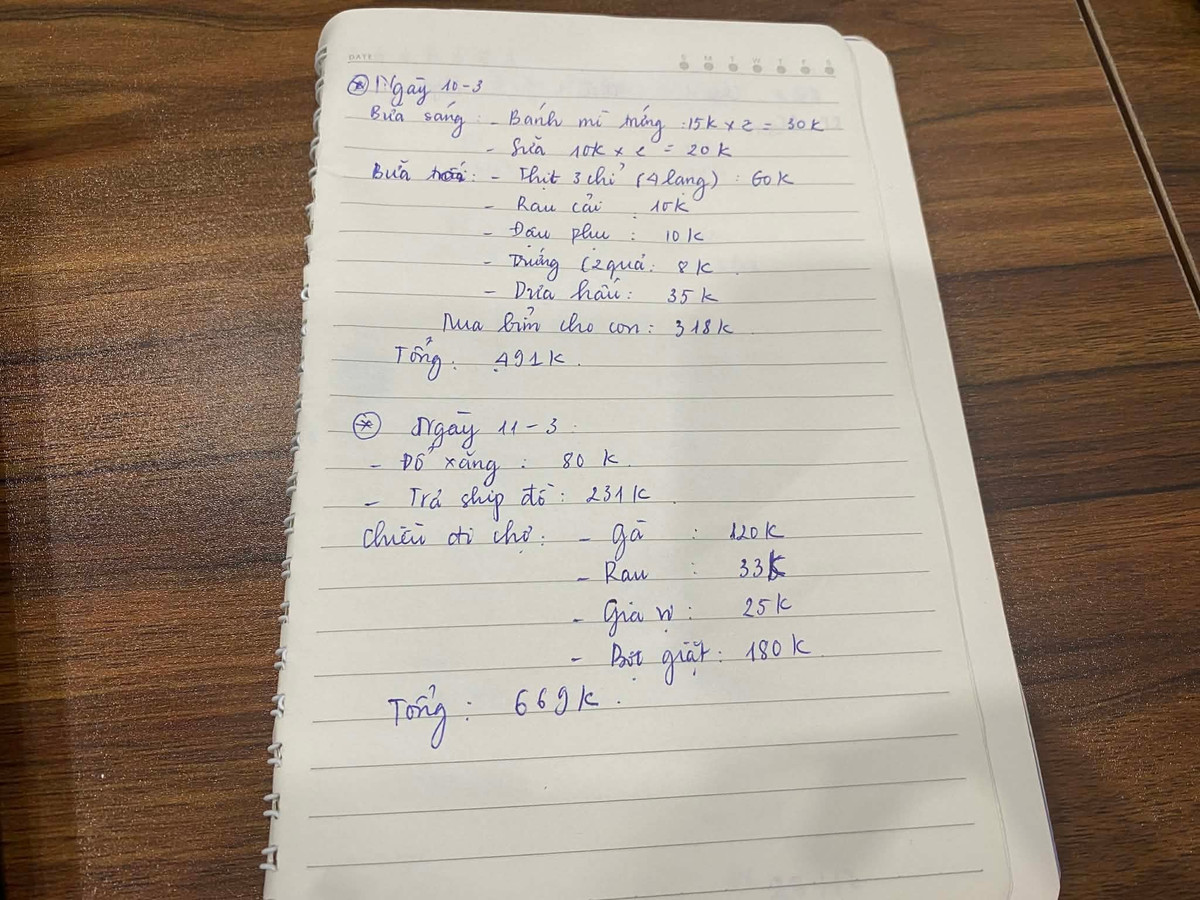 DATE
S M T W T F S
Ngày 10-3
Bữa sáng: - Bánh mì trứng : 15k x 2 = 30k
- Sữa 10k x 2 = 20k
Bữa : - Thịt 3 chỉ (4 lạng) : 60k
- Rau cải : 10k
- Đậu phụ : 10k
- Trứng (2 quả : 8k
- Dưa hấu : 35k
Mua bỉm cho con : 318k
Tổng : 491k.
Ngày 11-3 :
- Đổ xăng : 80k.
- Trả ship đồ : 231k
Chiều đi chợ : - Gà : 120k
- Rau : 33k
- Gia vị : 25k
- Bột giặt : 180k
Tổng : 669k.